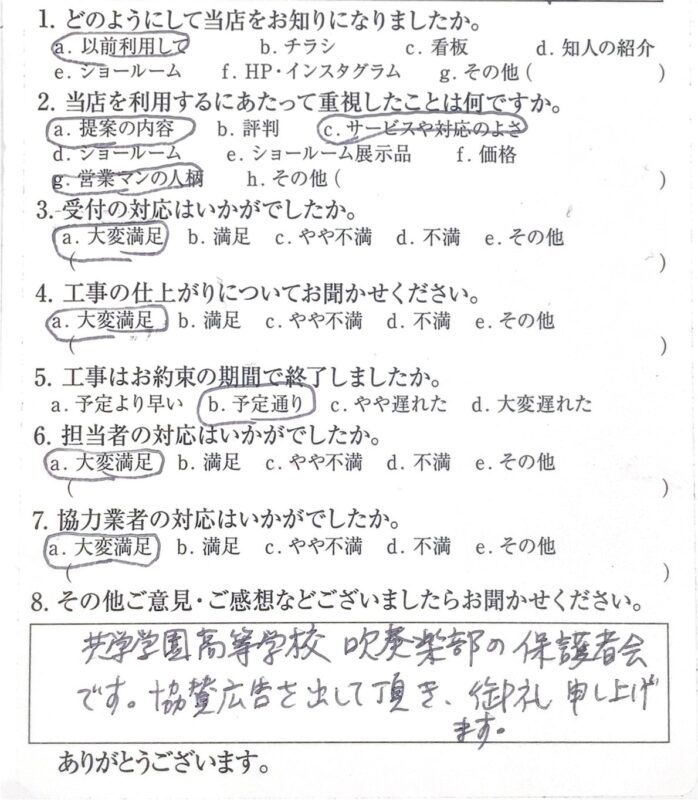 1. どのようにして当店をお知りになりましたか。
a. 以前利用して b. チラシ c. 看板 d. 知人の紹介
e. ショールーム f. HP・インスタグラム g. その他 ( )
2. 当店を利用するにあたって重視したことは何ですか。
a. 提案の内容 b. 評判 c. サービスや対応のよさ
d. ショールーム e. ショールーム展示品 f. 価格
g. 営業マンの人柄 h. その他 ( )
3. 受付の対応はいかがでしたか。
a. 大変満足 b. 満足 c. やや不満 d. 不満 e. その他
( )
4. 工事の仕上がりについてお聞かせください。
a. 大変満足 b. 満足 c. やや不満 d. 不満 e. その他
( )
5. 工事はお約束の期間で終了しましたか。
a. 予定より早い b. 予定通り c. やや遅れた d. 大変遅れた
6. 担当者の対応はいかがでしたか。
a. 大変満足 b. 満足 c. やや不満 d. 不満 e. その他
( )
7. 協力業者の対応はいかがでしたか。
a. 大変満足 b. 満足 c. やや不満 d. 不満 e. その他
( )
8. その他ご意見・ご感想などございましたらお聞かせください。
学園高等学校 吹奏楽部の保護者会
です。協賛広告を出して頂き、御礼申し上げ
ます。
ありがとうございます。